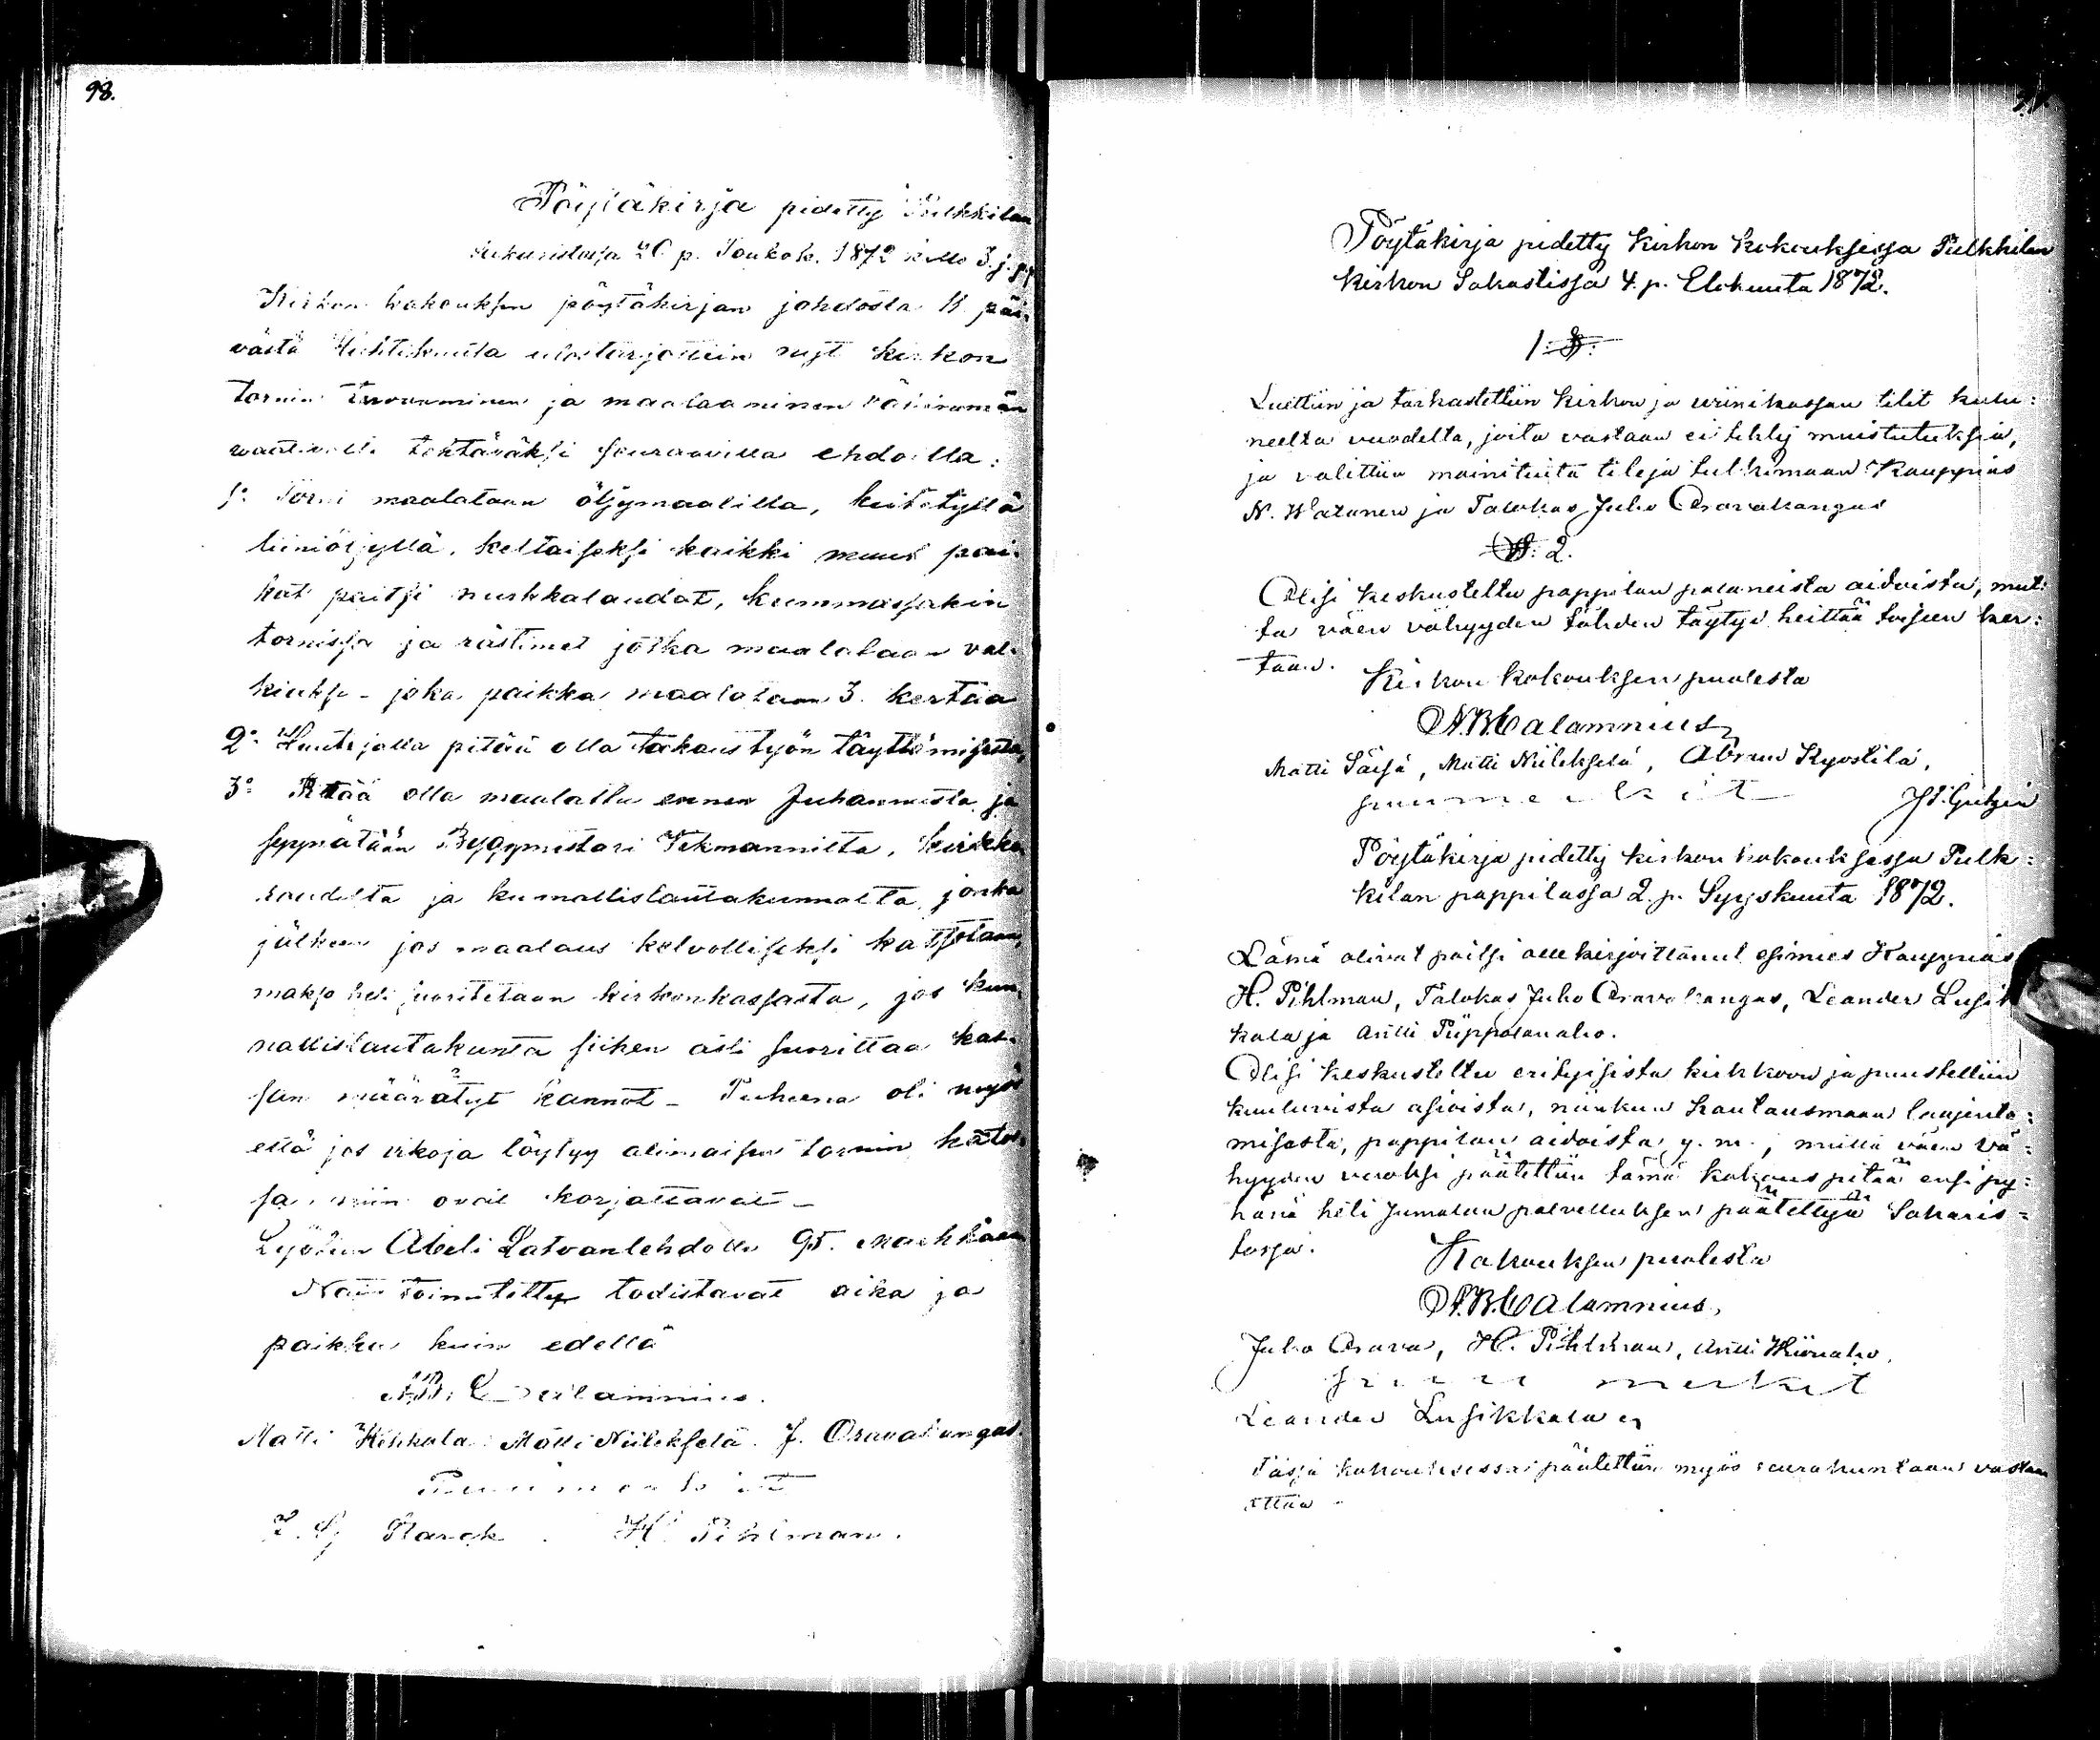 98.
Pöytäkirja pidetty Pulkkilan
sakaristossa 20 p. Toukok. 1872 kello 3. j. p.
Kirkon kokouksen pöytäkirjan johdosta 11 päi-
västä Huhtikuuta ulostarjottiin nyt kirkon
tornin tervaaminen ja maalaaminen vähimmän
vaativalle tehtäväksi seuraavilla ehdoilla:
1:o Torni maalataan öljymaalilla, keitetyllä
liiniöljyllä, keltaiseksi kaikki muut pai-
kat paitsi nurkkalaudat, kummassakin
tornissa ja rästimet jotka maalataan val-
kiaksi - joka paikka maalataan 3. kertaa
2:o Huutajalla pitää olla takaus työn täyttämisestä,
3:o Pitää olla maalattu ennen Juhannusta ja
synnätään Byggmestari Vekmannilta, kirkko
raadilta ja kunnallislautakunnalta, jonka
jälkeen jos maalaus kelvolliseksi katsotaan,
makso heti suoritetaan kirkonkassasta, jos kun-
nallislautakunta siihen asti suorittaa kas-
saan määrätyt kannot - Puheena oli myös
että jos vikoja löytyy alimaisen tornin katos-
sa, niin ovat korjattavat -
Lyötiin Abeli Latvanlehdolle 95. markkaan
Näin toimitetty todistavat aika ja
paikka kuin edellä
N.B. Calamnius.
Matti Kihkala Matti Niileksetä. J. Oravakangas.
Puumerkit
Z. Starck. H. Pihlman.
Pöytäkirja pidetty Kirkon kokouksessa Pulkkilan
Kirkon Sakastissa 4. p. Elokuuta 1872.
1. §.
Luettiin ja tarkastettiin Kirkon ja viinikassan tilit kulu:
neelta vuodelta, joita vastaan ei tehty muistutuksia,
ja valittiin mainituita tilejä tutkimaan Kauppias
N. Watanen ja Talokas Juho Oravakangas
§. 2.
Olisi keskusteltu pappilan palaneista aidoista, mut:
ta väen vähyyden tähden täytyi heittää toiseen ker:
taan.
Kirkon kokouksen puolesta
N.B. Calamnius
Matti Säisä, Matti Niileksetä, Abram Kyöstilä,
puumerkit
Pöytäkirja pidetty kirkon kokouksessa Pulk:
kilan pappilassa 2. p. Syyskuuta 1872.
Läsnä olivat paitsi allekirjoittanut esimies Kauppias
H. Pihlman, Talokas Juho Oravakangas, Leander Lusik
kala ja Antti Piippolanaho.
Olisi keskusteltu erityisistä kirkkoon ja puustelliin
kuuluvista asioista, niinkun hautausmaan laajenta:
misesta, pappilan aidoista y. m., mutta väen vä:
hyyden vuoksi päätettiin tämä kokous pitää ensi py:
hänä heti Jumalan palvelluksen päätettyä Sakaris=
tossa.
Kokouksen puolesta
N.B. Calamnius,
Juho Orava, H. Pihlman, Antti Hiironaho.
puumerkit
Leander Lusikkala
Tässä kokouksessa päätettiin myös seurakuntaan vastaan
ottaa